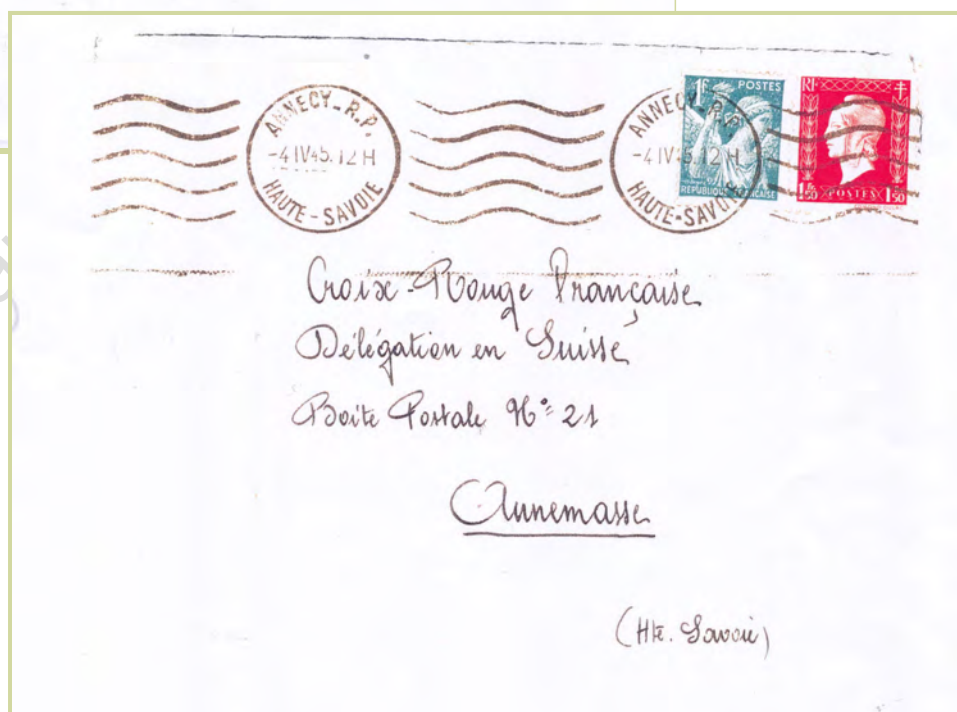 ANNECY-R.P.
-4 IV 45. 12 H
HAUTE-SAVOIE
ANNECY-R.P.
-4 IV 45 12 H
HAUTE-SAVOIE
1F POSTES
REPUBLIQUE FRANCAISE
RF
1F50 POSTES 1F50
Croix-Rouge Française
Délégation en Suisse
Boite Postale No= 21
Annemasse
(Hte. Savoie)